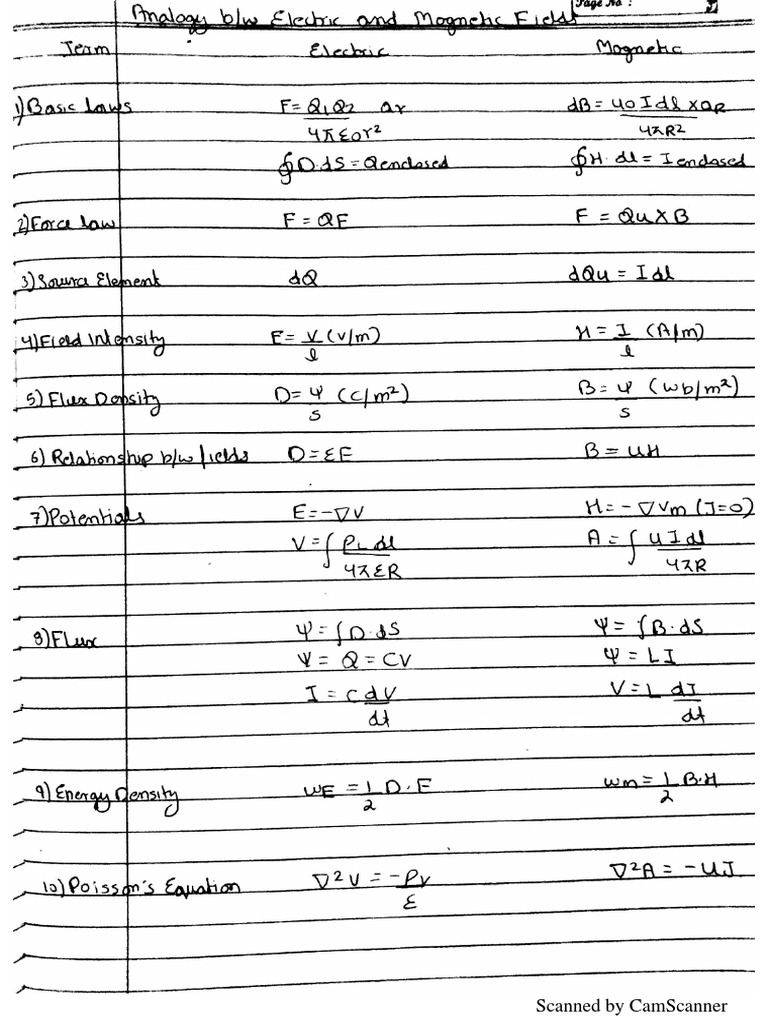 Page No :
Analogy b/w Electric and Magnetic Fields
Term Electric Magnetic
1) Basic Laws F = Q1Q2 ar dB = μ0 I dl × aR
4π ε0 r² 4πR²
∮ D·dS = Q enclosed ∮ H·dl = I enclosed
2) Force law F = QE F = Qu × B
3) Source Element dQ dQu = I dl
4) Field Intensity E = V (V/m) H = I (A/m)
l l
5) Flux Density D = Ψ (C/m²) B = Ψ (wb/m²)
S S
6) Relationship b/w fields D = εE B = μH
7) Potentials E = -∇V H = -∇Vm (J=0)
V = ∫ ρL dl A = ∫ μ I dl
4πεR 4πR
8) Flux Ψ = ∫ D·dS Ψ = ∫ B·dS
Ψ = Q = CV Ψ = LI
I = C dV V = L dI
dt dt
9) Energy Density wE = 1 D·E wm = 1 B·H
2 2
10) Poisson's Equation ∇²V = -ρv ∇²A = -μJ
ε
Scanned by CamScanner